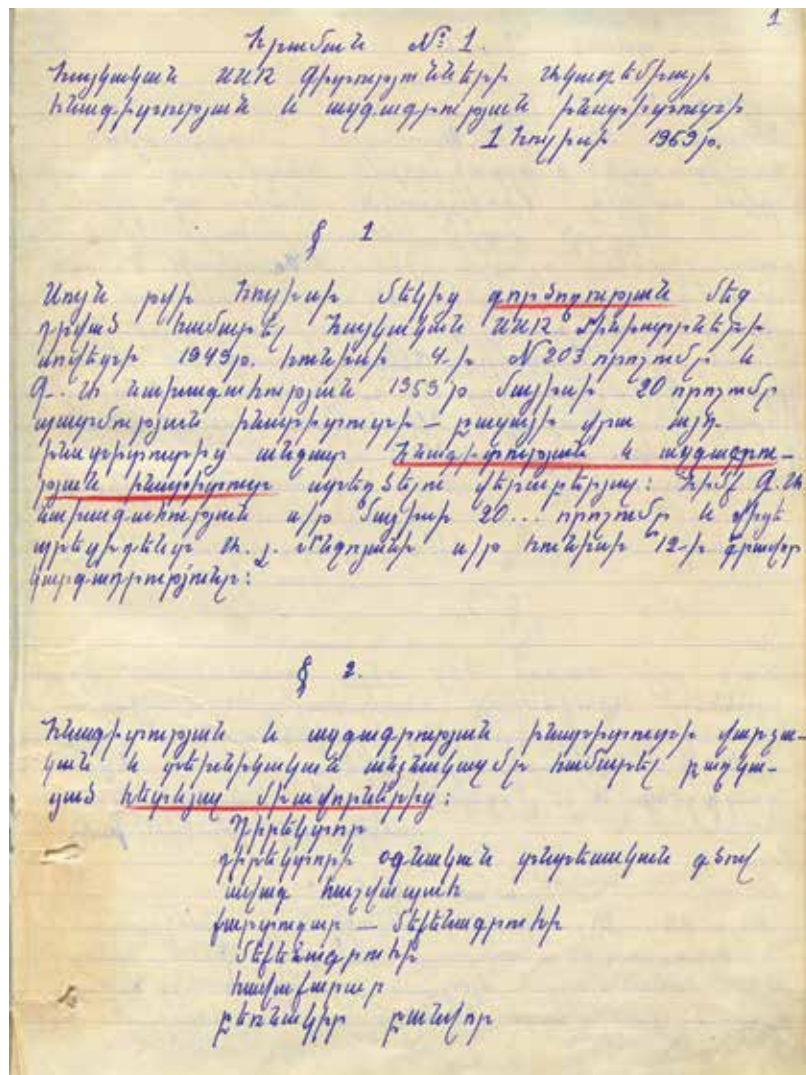 1
Հրաման № 1.
Հայկական ՍՍՌ Գիտությունների Ակադեմիայի
հնագիտության և ազգագրության ինստիտուտի
1 հուլիսի 1959թ.
§ 1
Սույն թվի հուլիսի մեկից գործողության մեջ
դրված համարել Հայկական ՍՍՌ Մինիստրների
սովետի 1949թ. հունիսի 4-ի № 203 որոշումը և
Գ. Ա նախագահության 1959թ մայիսի 20 որոշումը
պատմության ինստիտուտի — բազայի վրա այդ
ինստիտուտից անջատ հնագիտության և ազգագրու-
թյան ինստիտուտ ստեղծելու վերաբերյալ: Հիմք Գ. Ա.
նախագահության ս/թ մայիսի 20... որոշումը և վիցե
պրեզիդենտ Ա. Լ. Մնջոյանի ս/թ հունիսի 12-ի գրավոր
կարգադրությունը:
§ 2.
Հնագիտության և ազգագրության ինստիտուտի վարչա-
կան և տեխնիկական անձնակազմը համարել բաղկա-
ցած հետևյալ միավորներից:
Դիրեկտոր
դիրեկտորի օգնական տնտեսական գծով
ավագ հաշվապահ
քարտուղար — մեքենագրուհի
մեքենագրուհի
հավաքարար
բեռնակիր բանվոր